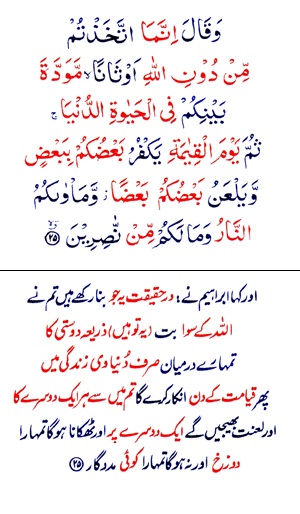 وَقَالَ اِنَّمَا اتَّخَذْتُمْ
مِّنْ دُوْنِ اللّٰهِ اَوْثَانًا ۙ مَّوَدَّةَ
بَيْنِكُمْ فِى الْحَيٰوةِ الدُّنْيَا ۚ
ثُمَّ يَوْمَ الْقِيٰمَةِ يَكْفُرُ بَعْضُكُمْ بِبَعْضٍ
وَّيَلْعَنُ بَعْضُكُمْ بَعْضًا ۡ وَّمَاْوٰىكُمُ
النَّارُ وَمَا لَكُمْ مِّنْ نّٰصِرِيْنَ ﴿۲۵﴾
اور کہا ابراہیم نے: درحقیقت یہ جو بنا رکھے ہیں تم نے
اللہ کے سوا بت (یہ تو ہیں) ذریعہ دوستی کا
تمہارے درمیان صرف دُنیاوی زندگی میں
پھر قیامت کے دن انکار کرے گا تم میں سے ہر ایک دوسرے کا
اور لعنت بھیجیں گے ایک دوسرے پر اور ٹھکانا ہوگا تمہارا
دوزخ اور نہ ہوگا تمہارا کوئی مددگار ﴿۲۵﴾